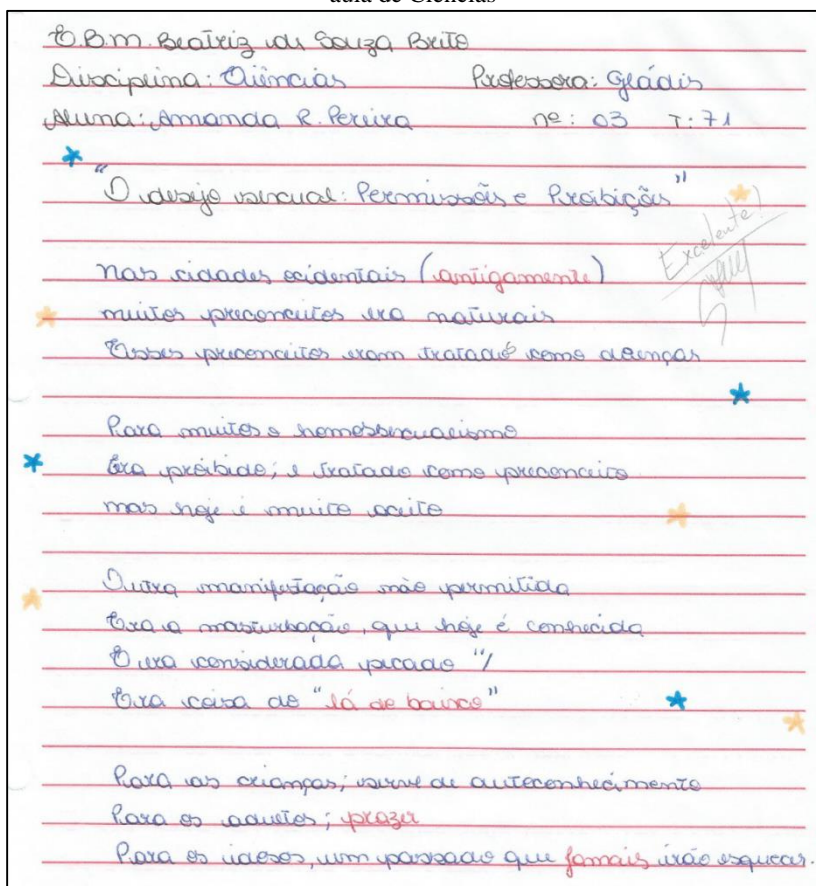 aula de Ciências
E.B.M. Beatriz de Souza Brito
Disciplina: Ciências Professora: Gládis
Aluna: Amanda R. Pereira nº: 03 T: 71
"O desejo sexual: Permissões e Proibições"
Excelente!
nas cidades ocidentais (antigamente)
muitos preconceitos era naturais
Esses preconceitos eram tratados como doenças
Para muitos o homossexualismo
Era proibido; e tratado como preconceito
mas hoje é muito aceito
Outra manifestação não permitida
Era a masturbação, que hoje é conhecida
E era considerada pecado "/
Era coisa do "lá de baixo"
Para as crianças; serve de autoconhecimento
Para os adultos; prazer
Para os idosos, um passado que jamais irão esquecer.